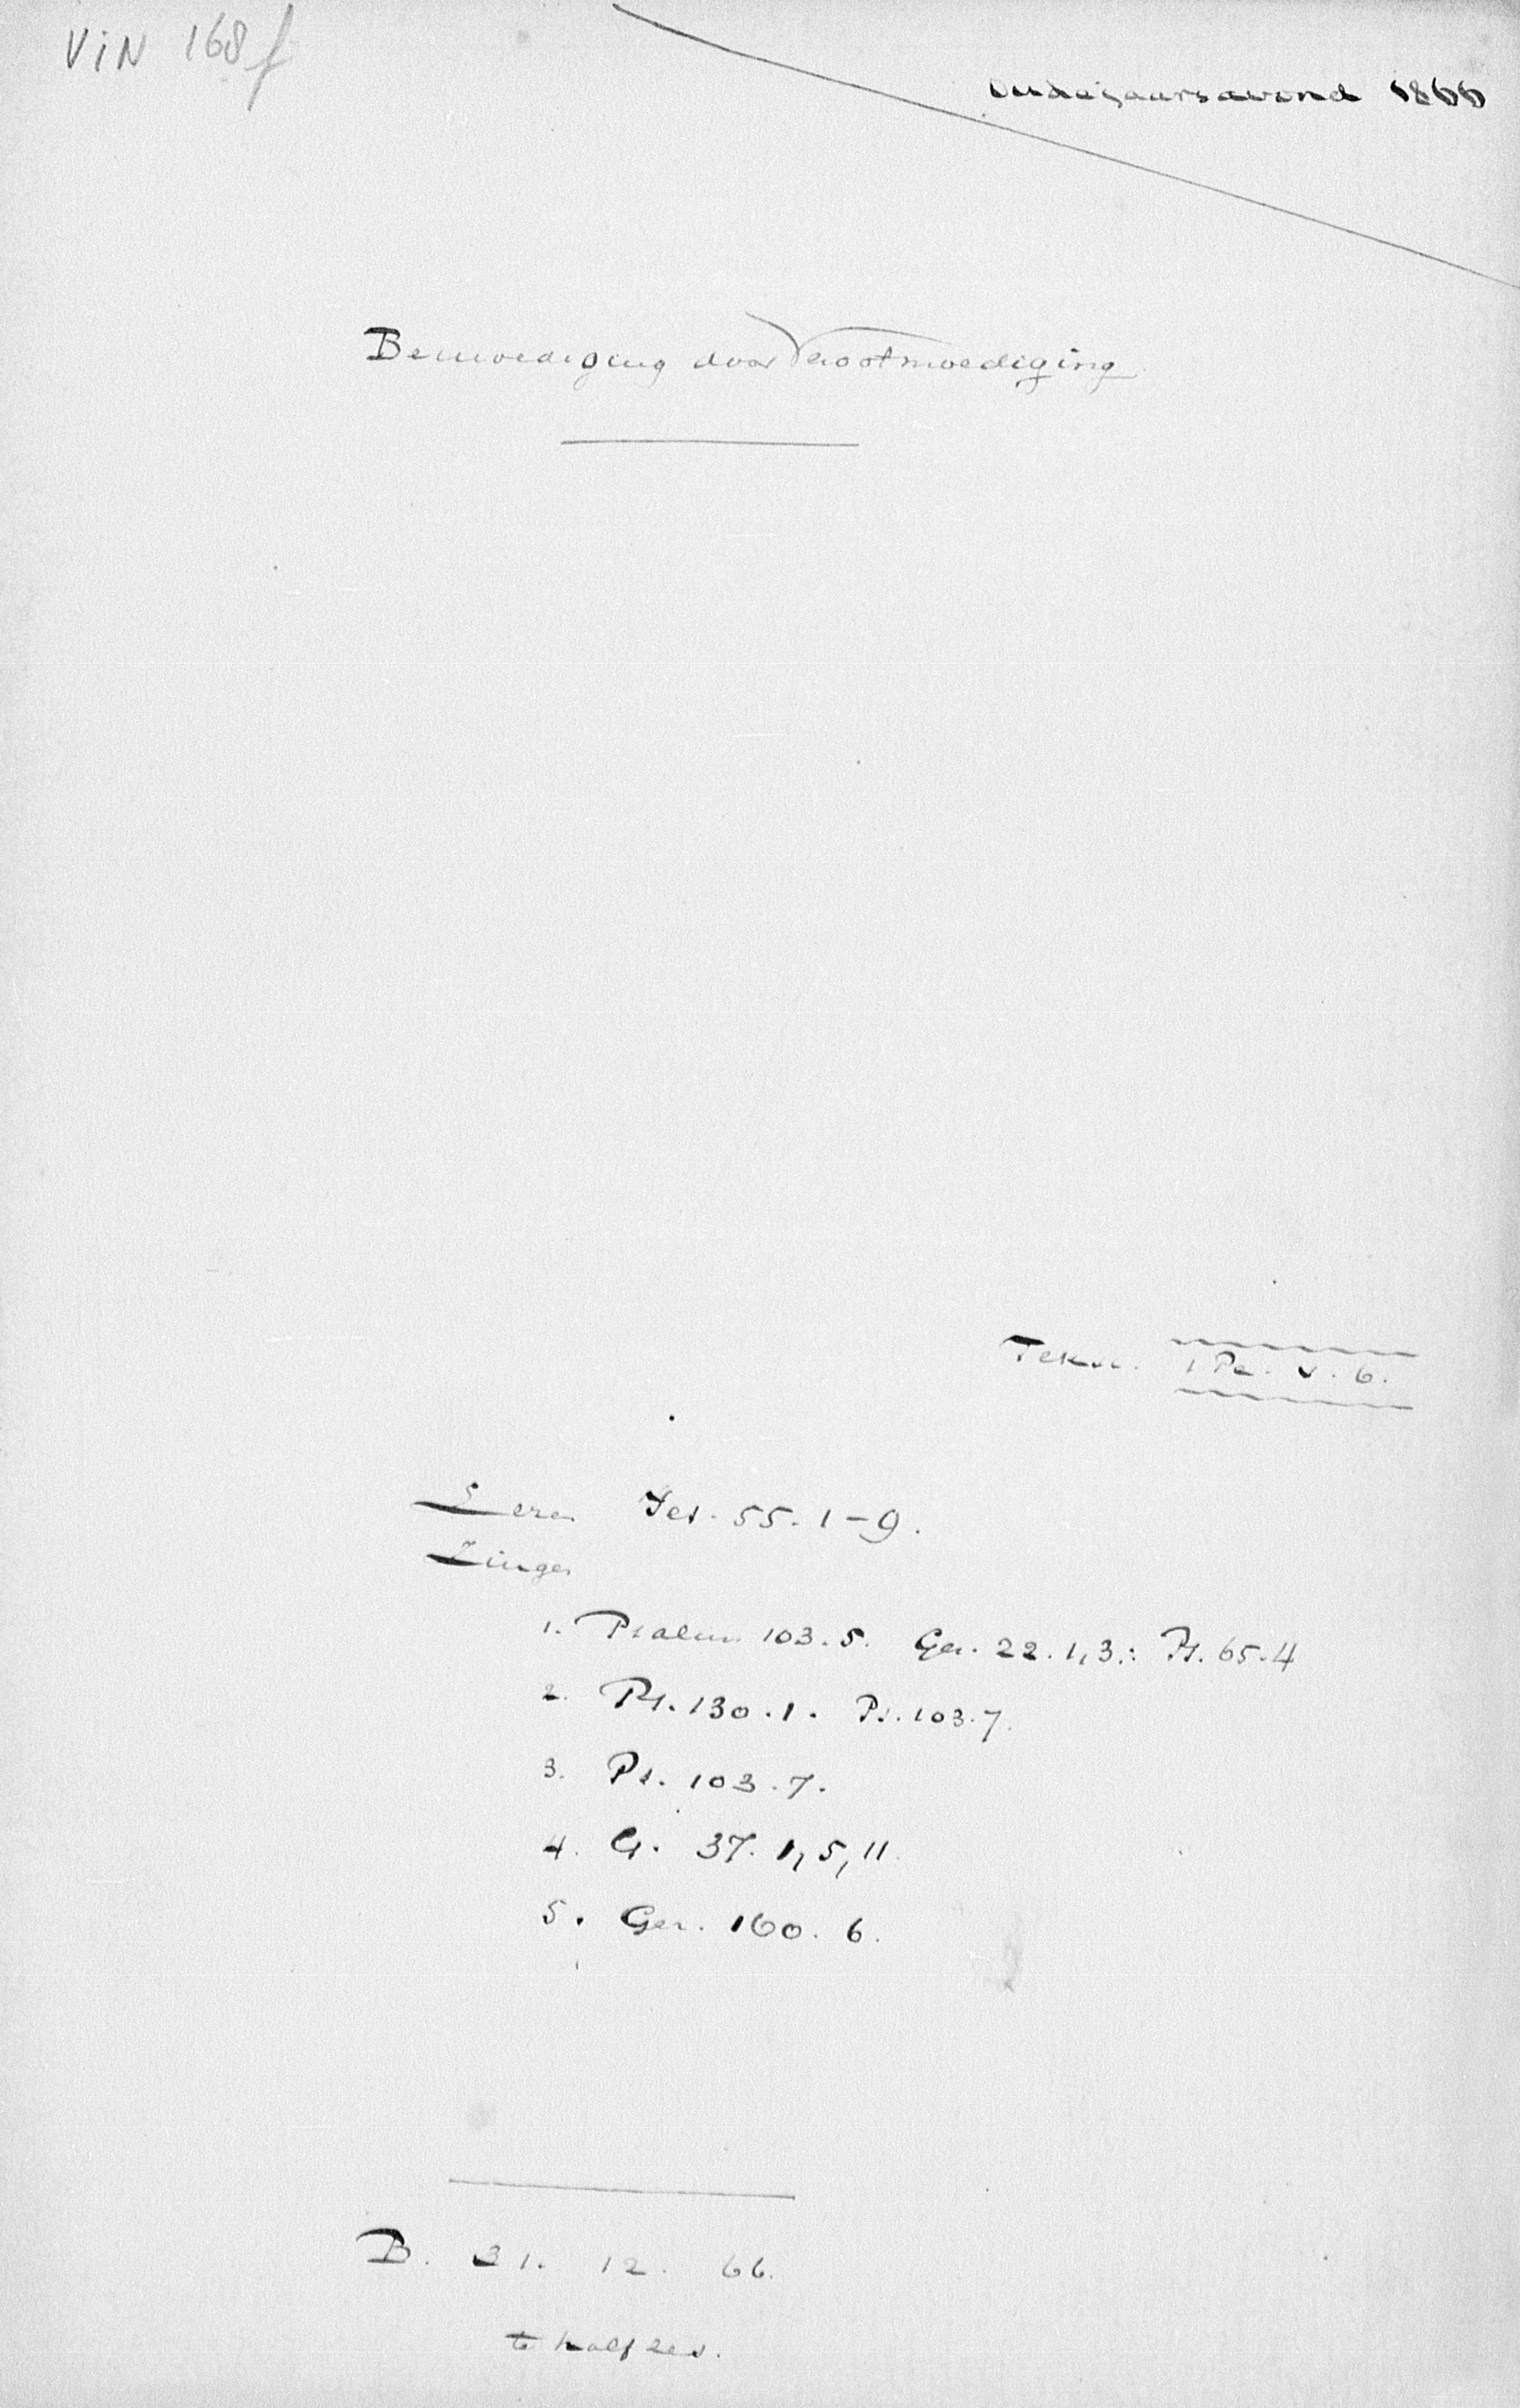 ViN 168f
Oudejaarsavond 1866
Bemoediging door Verootmoediging
Tekst. 1 Pe. V. 6.
Lezen Jes. 55. 1-9.
Zingen
1. Psalm 103. 5. Gez. 22. 1, 3 : Ps. 65. 4
2. Ps. 130. 1. Ps. 103. 7.
3. Ps. 103. 7.
4. G. 37. 1, 5, 11.
5. Gez. 160. 6.
B. 31. 12. 66.
te half zes.